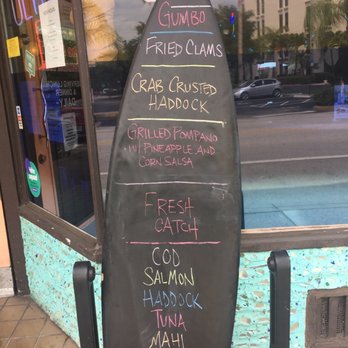 Gumbo
Fried Clams
Crab Crusted
Haddock
Grilled Pompano
w/ Pineapple and
Corn Salsa
Fresh
Catch
Cod
Salmon
Haddock
Tuna
Mahi